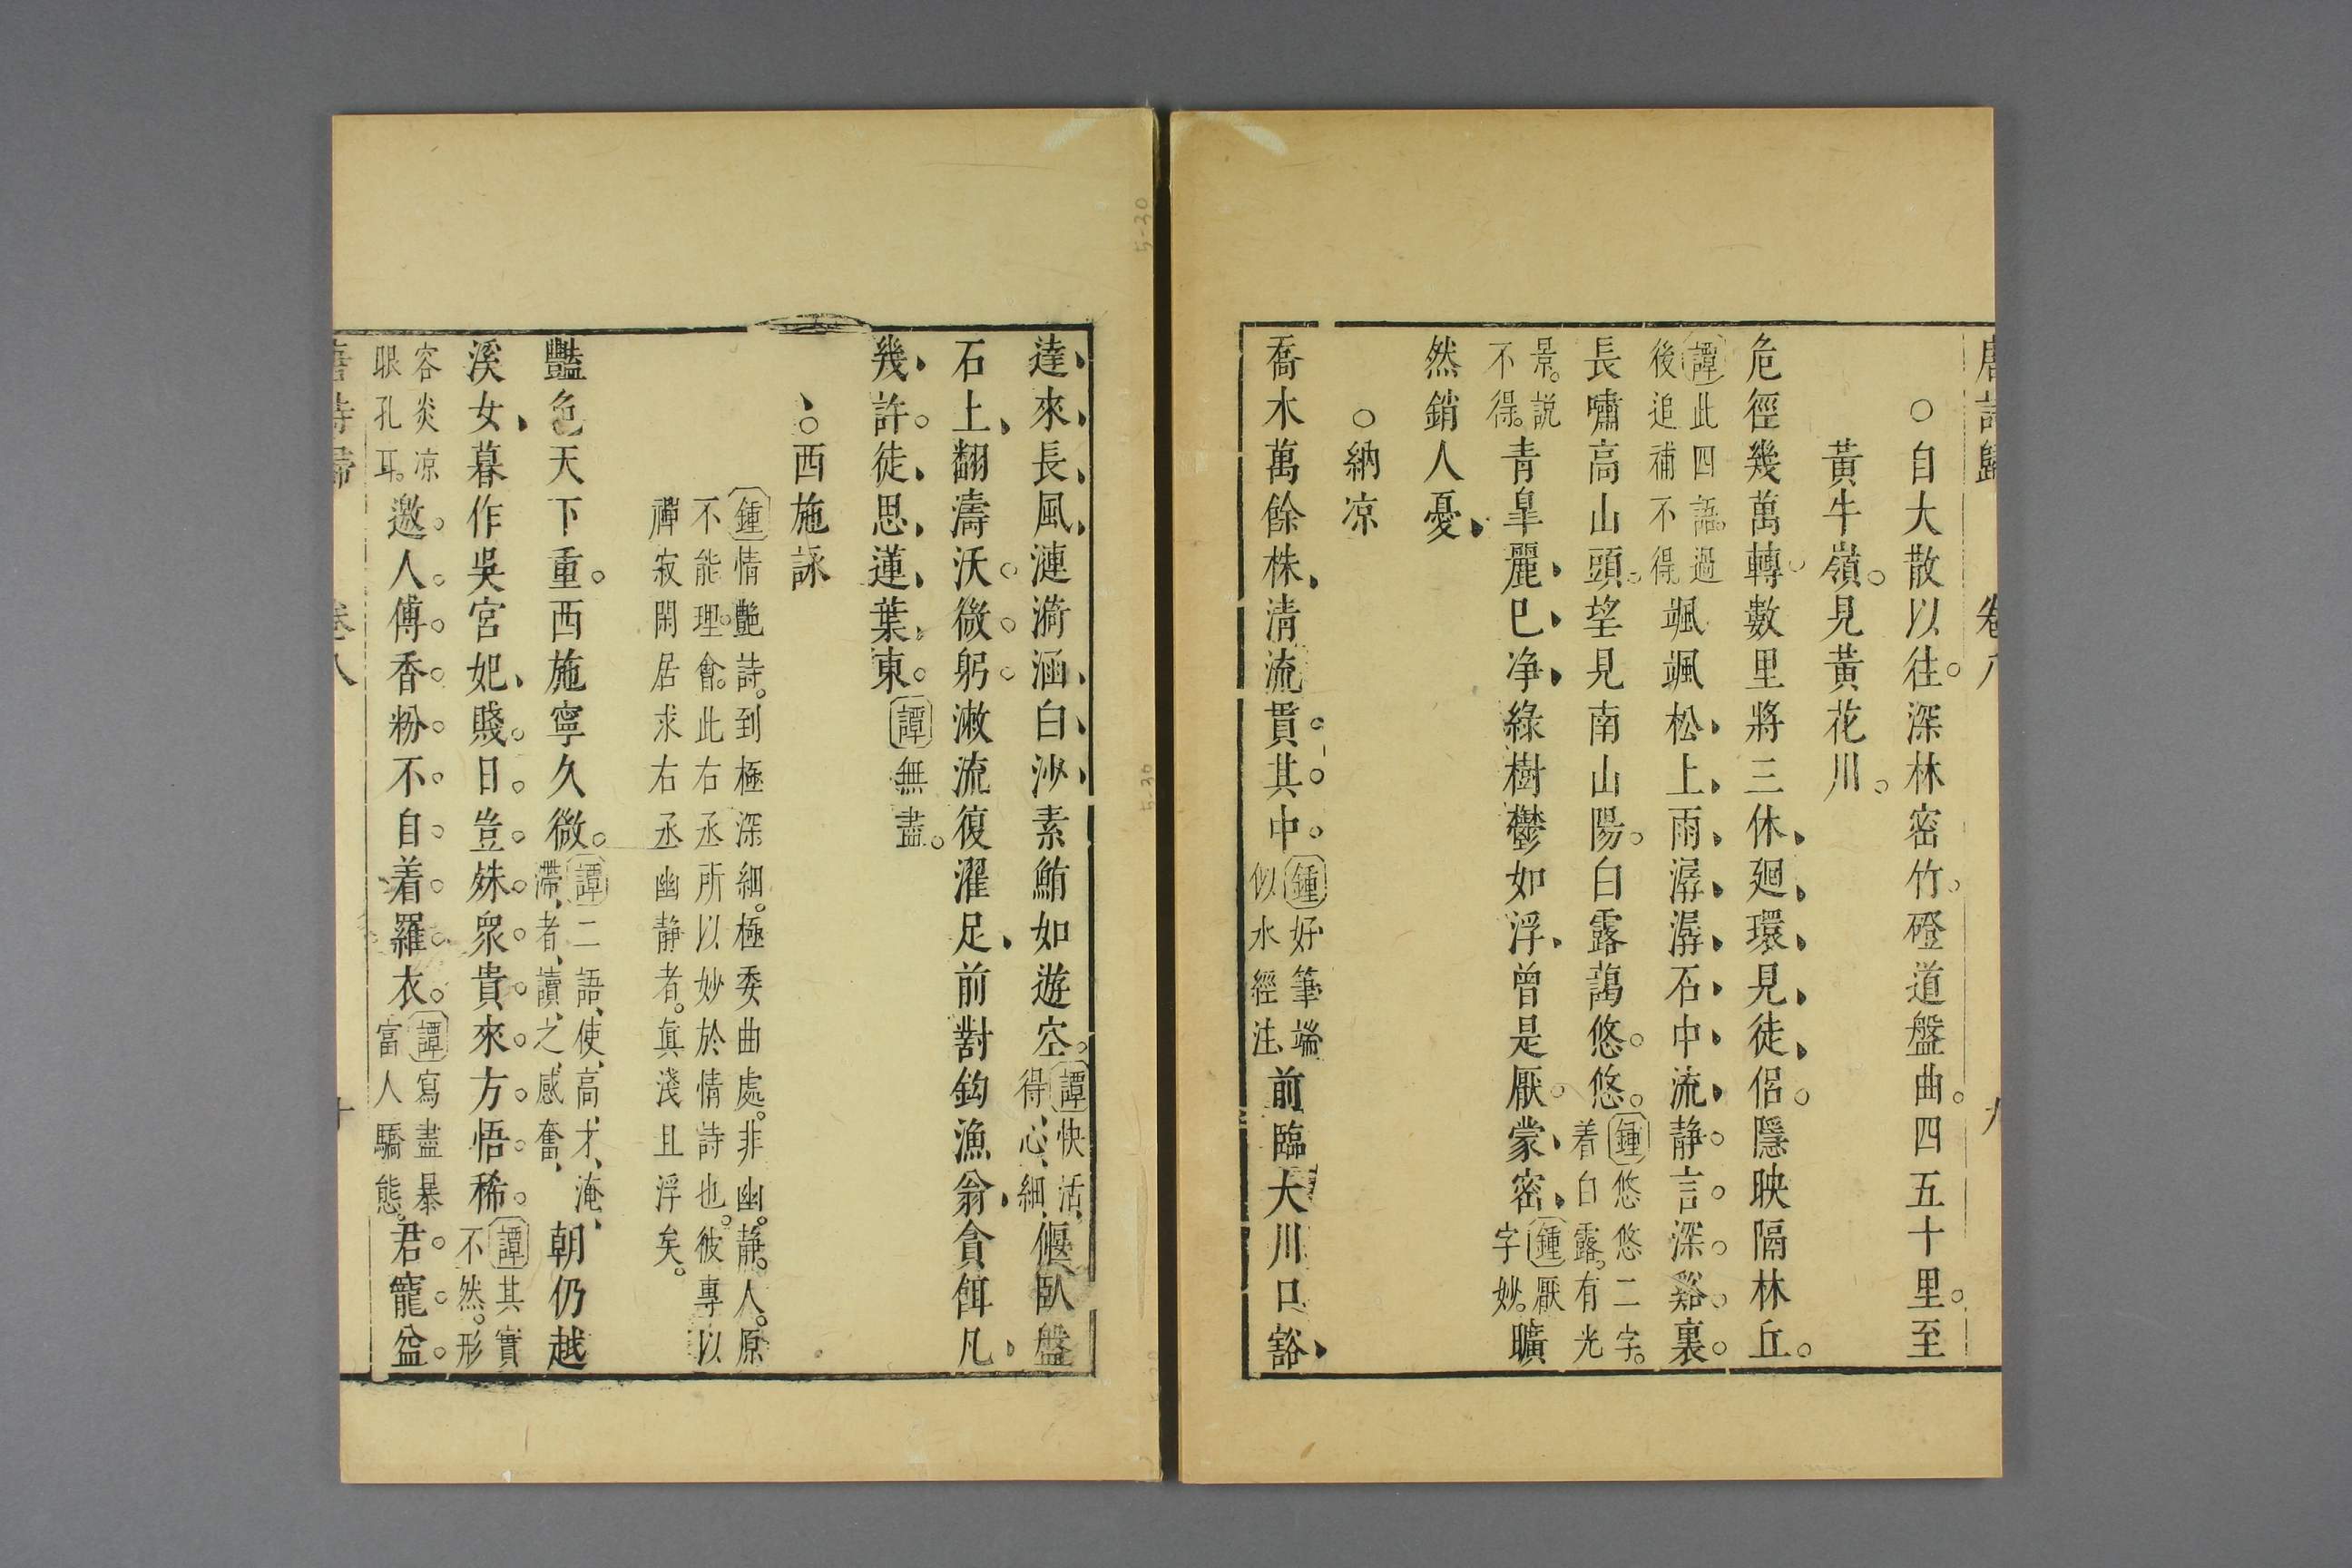 唐詩歸 卷八 九
○自大散以往。深林密竹。磴道盤曲。四五十里。至
黃牛嶺。見黃花川。
危徑幾萬轉。數里將三休、廻、環、見、徒、侶。隱映隔林丘。
颯颯松、上、雨、潺、潺、石、中、流、靜。言。深。谿。裏。
譚此四語。過
後追補不得
長嘯高山頭。望見南山陽。白露藹悠。悠。
鍾悠悠二字。
着白露。有光
景。說
不得。
青皐麗、已、凈、綠樹鬱如浮、曾是厭。蒙、密、
鍾厭
字妙。
曠
然銷人憂、
○納凉
喬木萬餘株、清流貫。其。中。
鍾好筆端
似水經注
前臨大川口豁、
達、來、長、風、漣漪涵、白、沙、素鮪如遊空。
譚快活、
得、心、細、
偃臥盤
石上、翻濤沃。微。躬。漱流復濯足、前對釣漁翁、貪餌凡、
幾、許。徒、思、蓮、葉、東。
譚無盡。
、○西施詠
鍾情艷詩。到極深細。極委曲處。非幽。靜。人。原
不能理。會。此右丞所以妙於情詩也。彼專以
禪寂閑居求右丞幽靜者。眞淺且浮矣。
豔色天下重。西施寧久微。
譚二語、使、高、才、淹、
滯、者、讀、之、感奮、
朝仍越
溪女、暮作吳宮妃、賤。日。豈。殊。衆。貴。來。方。悟。稀。
譚其實
不然。形
容炎凉
眼孔耳。
邀。人。傅。香。粉。不。自。着。羅。衣。
譚寫盡暴
富人驕態。
君。寵。益。
唐詩歸 卷八 十